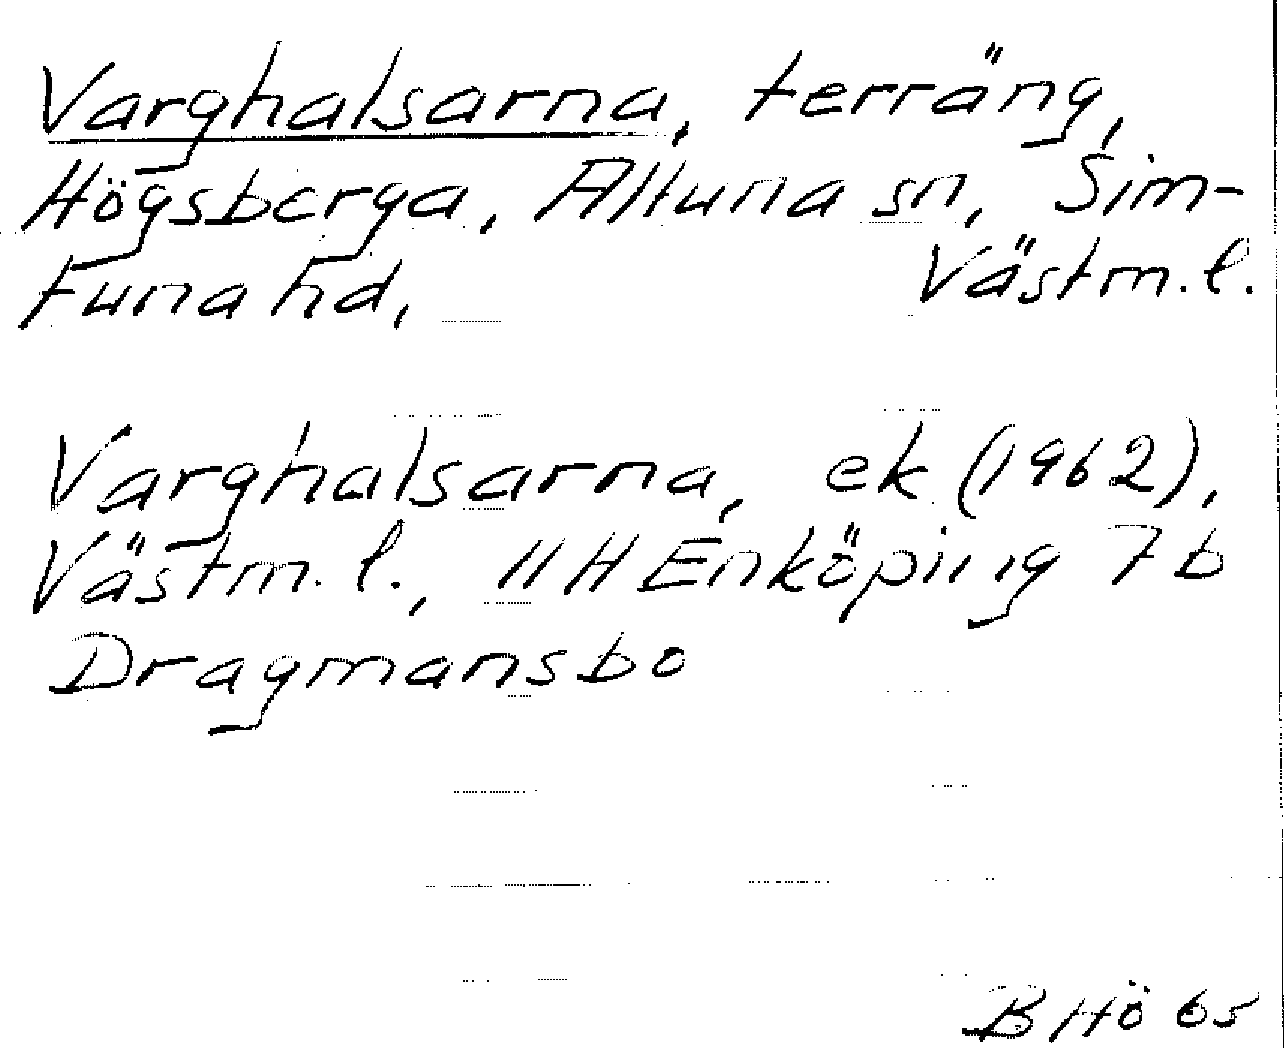 Varghalsarna, terräng,
Högsberga, Altuna sn, Sim-
tuna hd, Västm.l.
Varghalsarna, ek (1962),
Västm.l., 11 H Enköping 7 b
Dragmansbo
B Hö 65